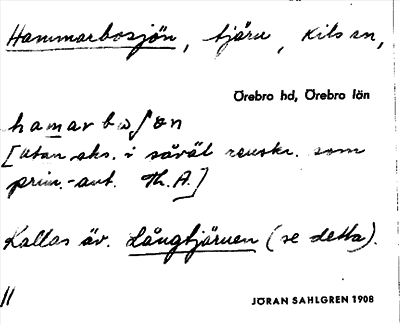 Hammarbosjön, tjärn, Kils sn,
Örebro hd, Örebro län
hamarbωʃøn
[utan aks. i såväl renskr. som
prim.-ant. Th.A.]
Kallas äv. Långtjärnen (se detta).
//
JÖRAN SAHLGREN 1908